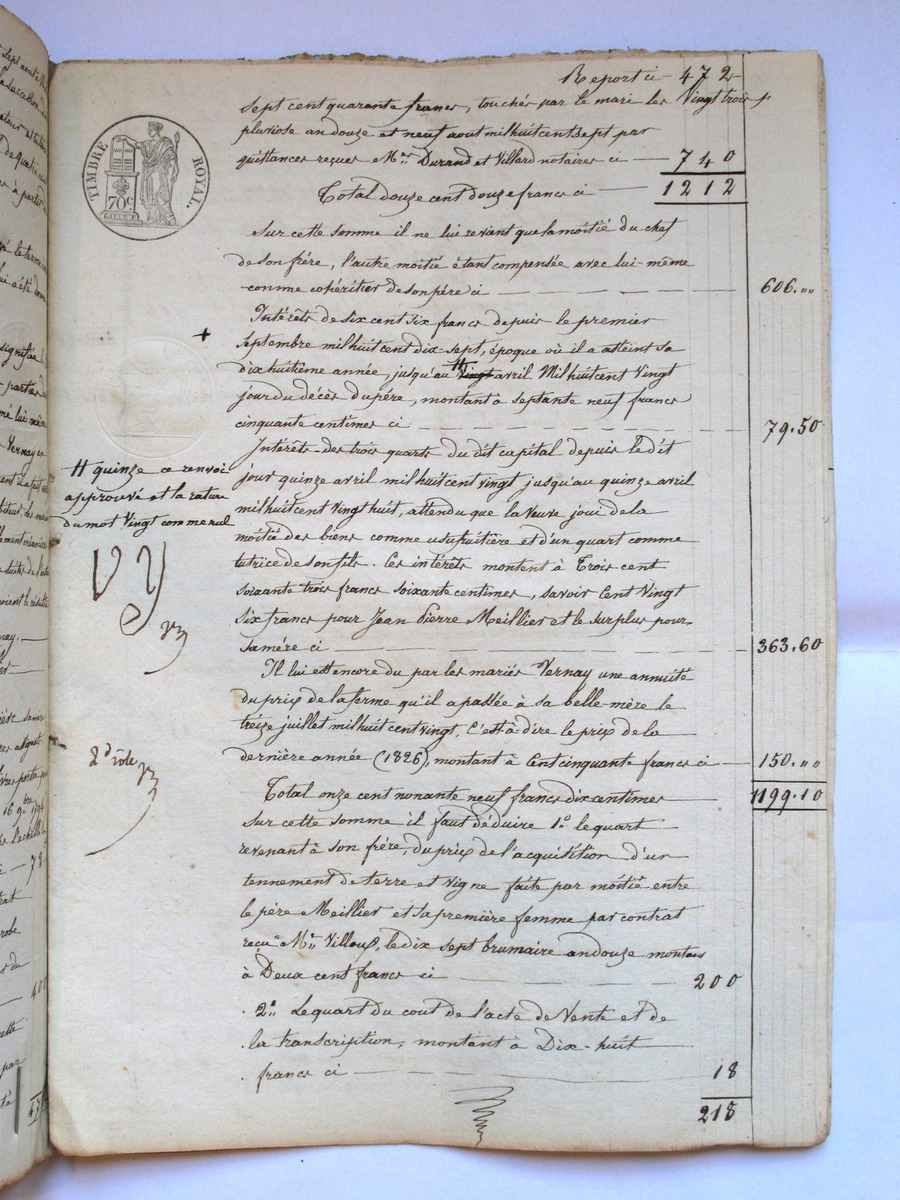 Report ci 472
Sept cent quarante francs, touchés par le mari les Vingt trois
pluviose an douze et neuf aout mil huit cent sept par
quittances reçues Mrs Durand et Villard notaires ci 740
Total douze cent douze francs ci 1212
TIMBRE ROYAL.
70c
Sur cette somme il ne lui revient que la moitié du chef
de son frére, l'autre moitié étant compensée avec lui-même
comme cohéritier de son pére ci 606.,,
Intérêts de six cent six francs depuis le premier
+
septembre mil huit cent dix sept, époque où il a atteint sa
dix huitième année, jusqu'au # Vingt avril Mil huit cent Vingt
jour du décès du pére, montant à septante neuf francs
cinquante centimes ci 79.50
Intérêts des trois quarts du dit capital depuis le dit
jour quinze avril mil huit cent vingt jusqu'au quinze avril
mil huit cent vingt huit, attendu que la veuve joui de la
moitié des biens comme usufruitière et d'un quart comme
tutrice de son fils. Ces intérêts montent à Trois cent
soixante trois francs soixante centimes, savoir Cent Vingt
Six francs pour Jean Pierre Meillier et le surplus pour
sa mére ci 363.60
# quinze ce renvoi
approuvé et la rature
du mot Vingt comme nul
Il lui est encore du par les mariés Vernay une annuité
du prix de la ferme qu'il a passée à sa belle-mère le
treize juillet mil huit cent vingt, C'est à dire le prix de la
dernière année (1826), montant à Cent cinquante francs ci 150.,,
2d rôle
Total onze cent nonante neuf francs dix centimes 1199.10
Sur cette somme il faut déduire 1.o le quart
revenant à son frére, du prix de l'acquisition d'un
tennement de terre et vigne faite par moitié entre
le pére Meillier et sa première femme par contrat
reçu Me Villoux, le dix sept brumaire an douze montant
à Deux cent francs ci 200
2.o Le quart du cout de l'acte de Vente et de
la transcription, montant à Dix-huit
francs ci 18
218